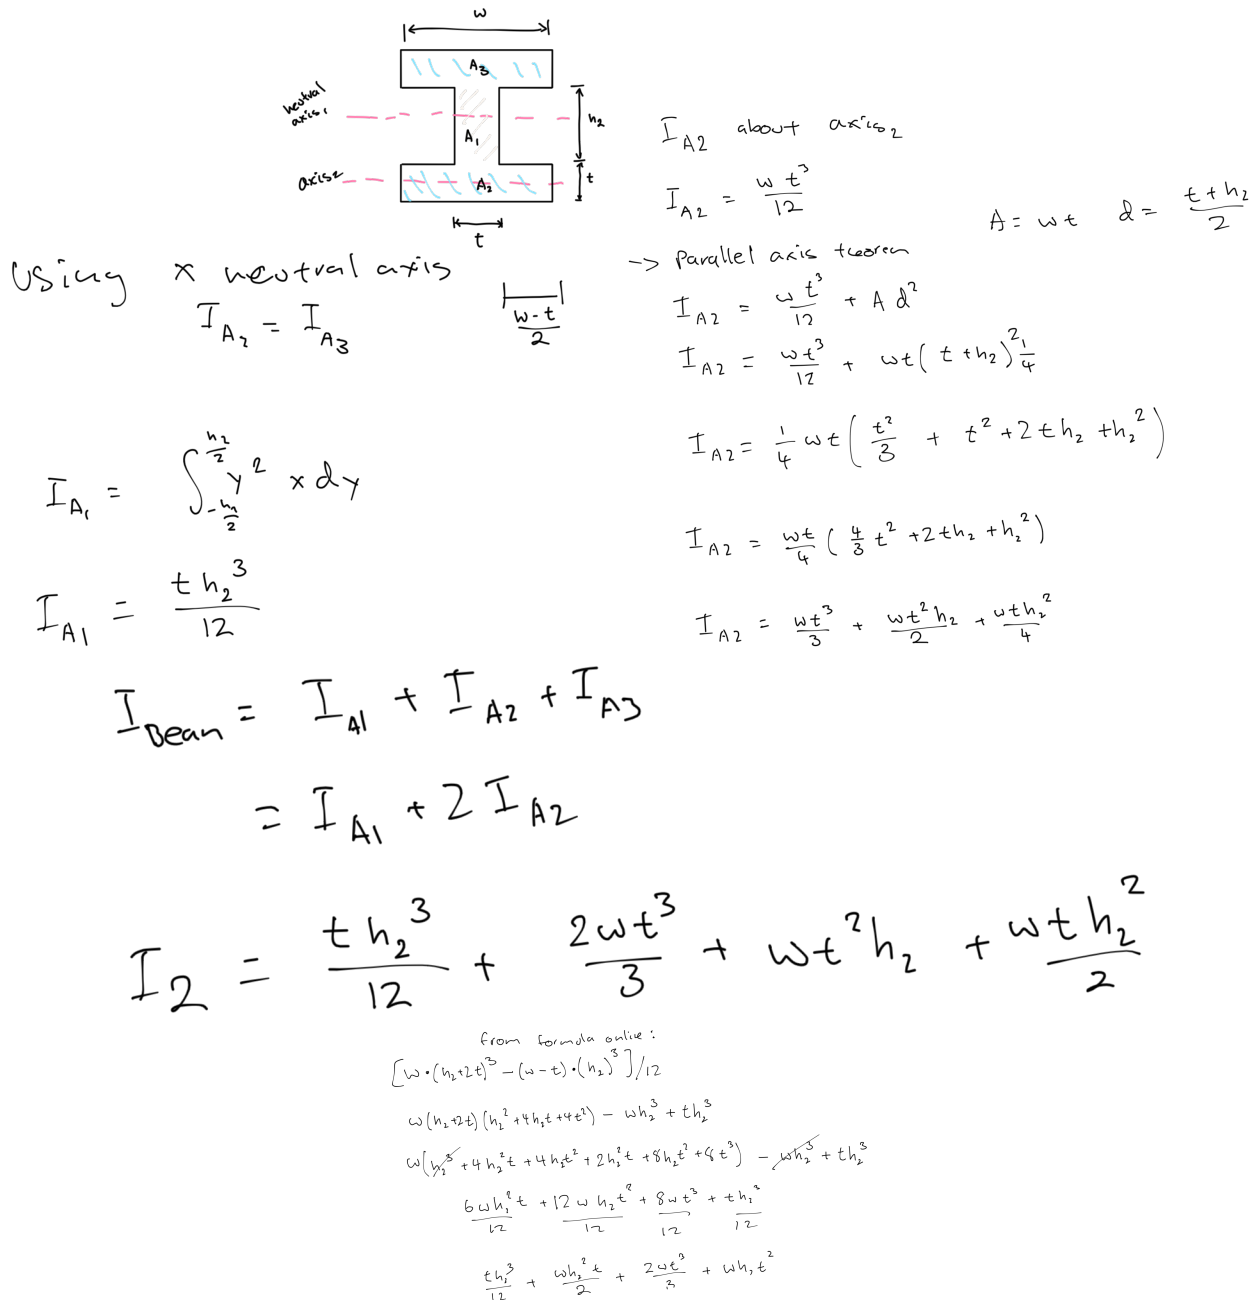 w
A₃
neutral
axis₁
h₂
A₁
axis₂
A₂
t
t
Using x neutral axis
I_A₂ = I_A₃
(w-t)/2
I_A₁ = ∫_{-h₂/2}^{h₂/2} y² x dy
I_A1 = t h₂³/12
I_A2 about axis₂
I_A2 = w t³/12
A = wt d = (t+h₂)/2
-> Parallel axis theorem
I_A2 = w t³/12 + A d²
I_A2 = wt³/12 + wt(t+h₂)² 1/4
I_A2 = 1/4 wt(t²/3 + t² + 2th₂ + h₂²)
I_A2 = wt/4 (4/3 t² + 2th₂ + h₂²)
I_A2 = wt³/3 + wt²h₂/2 + wth₂²/4
I_Beam = I_A1 + I_A2 + I_A3
= I_A1 + 2 I_A2
I₂ = t h₂³/12 + 2wt³/3 + wt²h₂ + wth₂²/2
from formula online:
[w·(h₂+2t)³ - (w-t)·(h₂)³]/12
w(h₂+2t)(h₂²+4h₂t+4t²) - wh₂³ + th₂³
w(h₂³ + 4h₂²t + 4h₂t² + 2h₂²t + 8h₂t² + 8t³) - wh₂³ + th₂³
6wh₂²t/12 + 12wh₂t²/12 + 8wt³/12 + th₂³/12
th₂³/12 + wh₂²t/2 + 2wt³/3 + wh₂t²